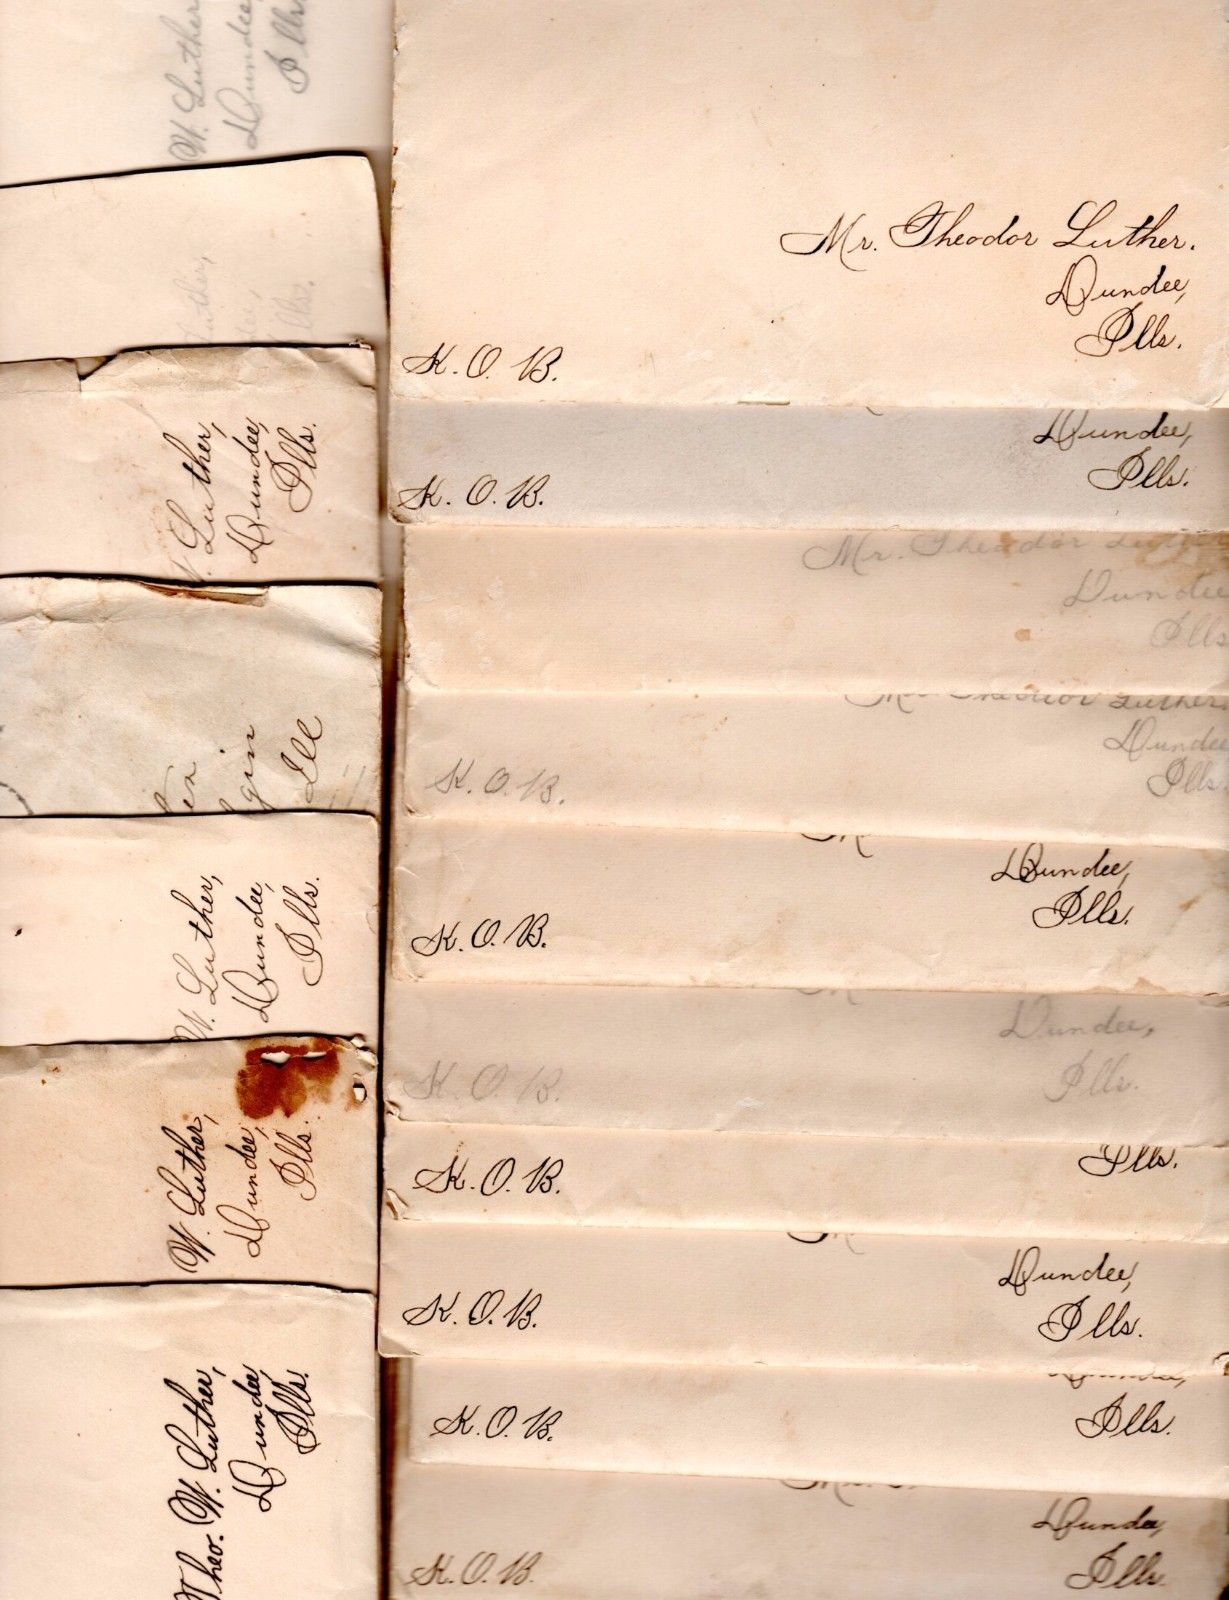 W. Luther
Dundee,
Ills.
Luther,
Ills.
Luther,
Dundee,
Ills.
gin
Ill
W. Luther,
Dundee,
Ills.
W. Luther,
Dundee,
Ills.
Theo. W. Luther,
Dundee,
Ills.
Mr. Theodor Luther.
Dundee,
Ills.
K. O. B.
Dundee,
Ills.
K. O. B.
Mr. Theodor Luther
Dundee
Ills
Mr. Theodor Luther.
Dundee
Ills.
K. O. B.
Dundee,
Ills.
K. O. B.
Dundee,
Ills.
K. O. B.
Ills.
K. O. B.
Dundee,
Ills.
K. O. B.
Dundee,
Ills.
K. O. B.
Dundee,
Ills.
K. O. B.